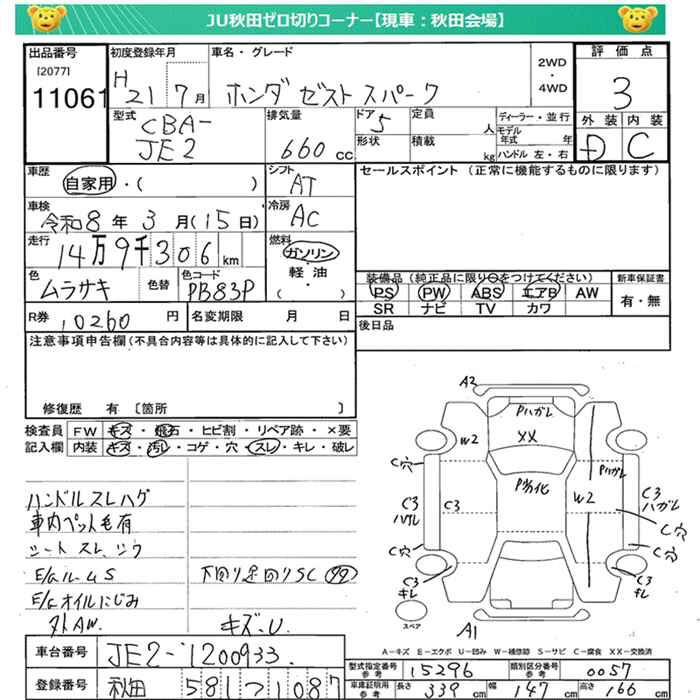 JU秋田ゼロ切りコーナー【現車：秋田会場】
出品番号
[2077]
11061
初度登録年月
H 21 7月
車名・グレード
ホンダ ゼスト スパーク
2WD
・
4WD
評価点
3
外装 内装
D C
型式
CBA-
JE2
排気量
660cc
ドア
5
形状
定員
人
積載
kg
ディーラー・並行
モデル年式 年
ハンドル 左・右
車歴
自家用・( )
シフト
AT
セールスポイント（正常に機能するものに限ります）
車検
令和8年3月(15日)
冷房
AC
走行
14万9千306km
燃料
ガソリン
軽・油
( )
色
ムラサキ
色替
色コード
PB83P
装備品（純正品に限り○をつけてください）
PS PW ABS エアB AW
SR ナビ TV カワ
新車保証書
有・無
R券
10260円
名変期限 月 日
後日品
注意事項申告欄（不具合内容等は具体的に記入して下さい）
修復歴 有〔箇所 〕
検査員記入欄
FW キズ・飛石・ヒビ割・リペア跡・×要
内装 キズ・汚レ・コゲ・穴・スレ・キレ・破レ
ハンドルスレハゲ
車内ペット毛有
シートスレ、シワ
E/gルームS
E/gオイルにじみ
外AW.
下回り足回りSC
キズ・U.
A2
Pハガレ
XX
W2
C穴
Pハガレ
P劣化
W2
C3
ハガレ
C3
C3
ハガレ
C穴
C穴
C穴
C3
キレ
C3
キレ
スペア
A1
A－キズ E－エクボ U－凹み W－補修跡 S－サビ C－腐食 XX－交換済
車台番号
JE2-1200933
登録番号
秋田 581 つ 1087
型式指定番号
参考
15296
類別区分番号
参考
0057
車庫証明用
参考
長さ 339cm 幅 147cm 高さ 166cm